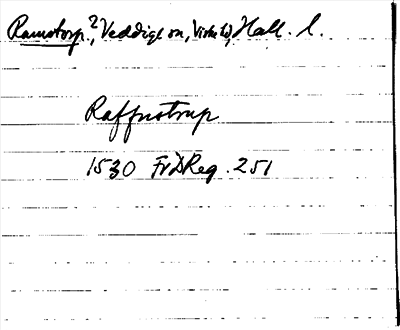 Ramstorp?, Veddige sn, Viske hd, Hall. l.
Raffnstrup
1530 FrDReg. 251